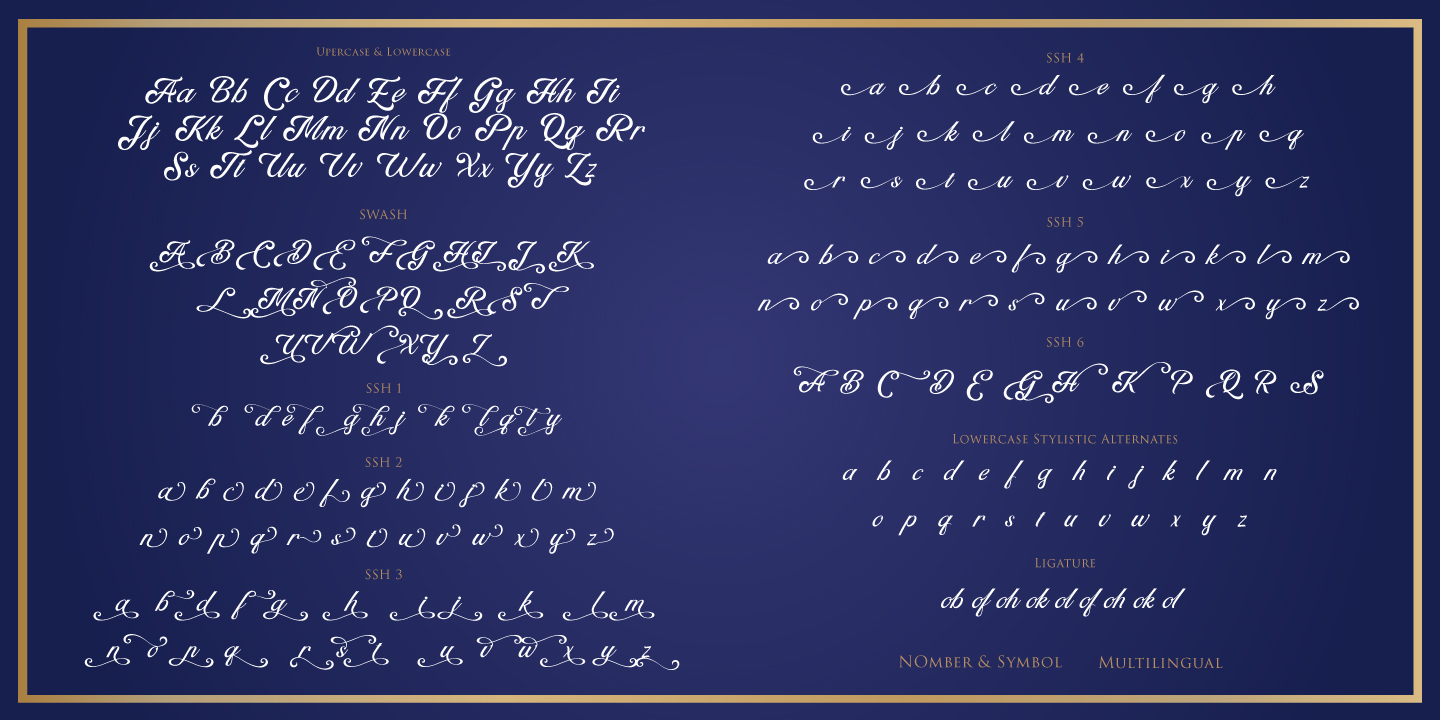 Upercase & Lowercase
Aa Bb Cc Dd Ee Ff Gg Hh Ii
Jj Kk Ll Mm Nn Oo Pp Qq Rr
Ss Tt Uu Vv Ww Xx Yy Zz
SWASH
A B C D E F G H I J K
L M N O P Q R S T
U V W X Y Z
SSH 1
b d e f g h j k l q t y
SSH 2
a b c d e f g h i j k l m
n o p q r s t u v w x y z
SSH 3
a b d f g h i j k l m
n o p q r s t u v w x y z
SSH 4
a b c d e f g h
i j k l m n o p q
r s t u v w x y z
SSH 5
a b c d e f g h i k l m
n o p q r s u v w x y z
SSH 6
A B C D E G H K P Q R S
Lowercase Stylistic Alternates
a b c d e f g h i j k l m n
o p q r s t u v w x y z
Ligature
ob of oh ok ol of oh ok ol
NOmber & Symbol Multilingual